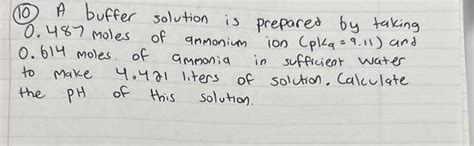 ⑩ A buffer solution is prepared by taking
0.487 moles of ammonium ion (pka = 9.11) and
0.614 moles of ammonia in sufficient water
to make 4.421 liters of solution. Calculate
the pH of this solution.